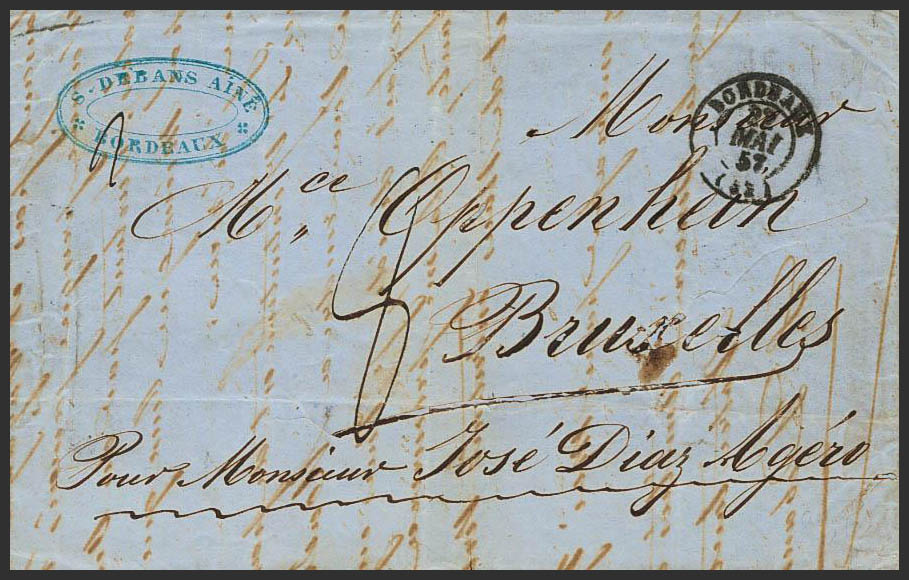 S. DEBANS AINÉ
BORDEAUX
BORDEAUX
22
MAI
57
(32)
Monsieur
Mce Oppenheim
Bruxelles
Pour Monsieur José Diaz Agéro